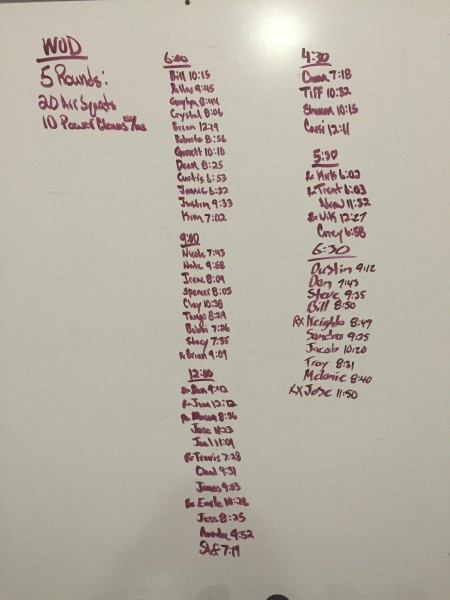 WOD
5 Rounds:
20 Air Squats
10 Power Cleans
6:00
Bill 10:15
Dallas 9:45
8:44
Crystal 8:06
Brian 12:19
Roberto 8:56
Garrett 10:10
Dean 8:25
Curtis 6:53
Jannie 6:32
Justin 9:33
Kim 7:02
9:00
Nicole 7:43
Nate 9:58
Irene 8:09
Spencer 8:05
Clay 10:38
Tango 8:29
Bobbi 7:26
Stacy 7:35
Rx Brian 9:09
12:00
Rx Dan 9:42
Rx 12:12
Rx Mason 8:36
Jose 11:23
Joel 11:09
Rx Travis 7:28
Chad 9:31
James 9:53
Rx Earle
Jess 8:25
9:52
7:19
4:30
7:18
Tiff 10:32
Shannon 10:15
Corsi 12:11
5:30
Rx Kirk 6:02
Rx Trent 6:03
11:32
Rx Nik 12:27
Corey 6:58
6:30
Dustin 9:12
Dan 7:43
Steve 9:25
Bill 8:50
Rx Keighla 8:47
Sandra 9:25
Jacob 10:20
Troy 8:31
Melanie 8:40
RX Jose 11:50